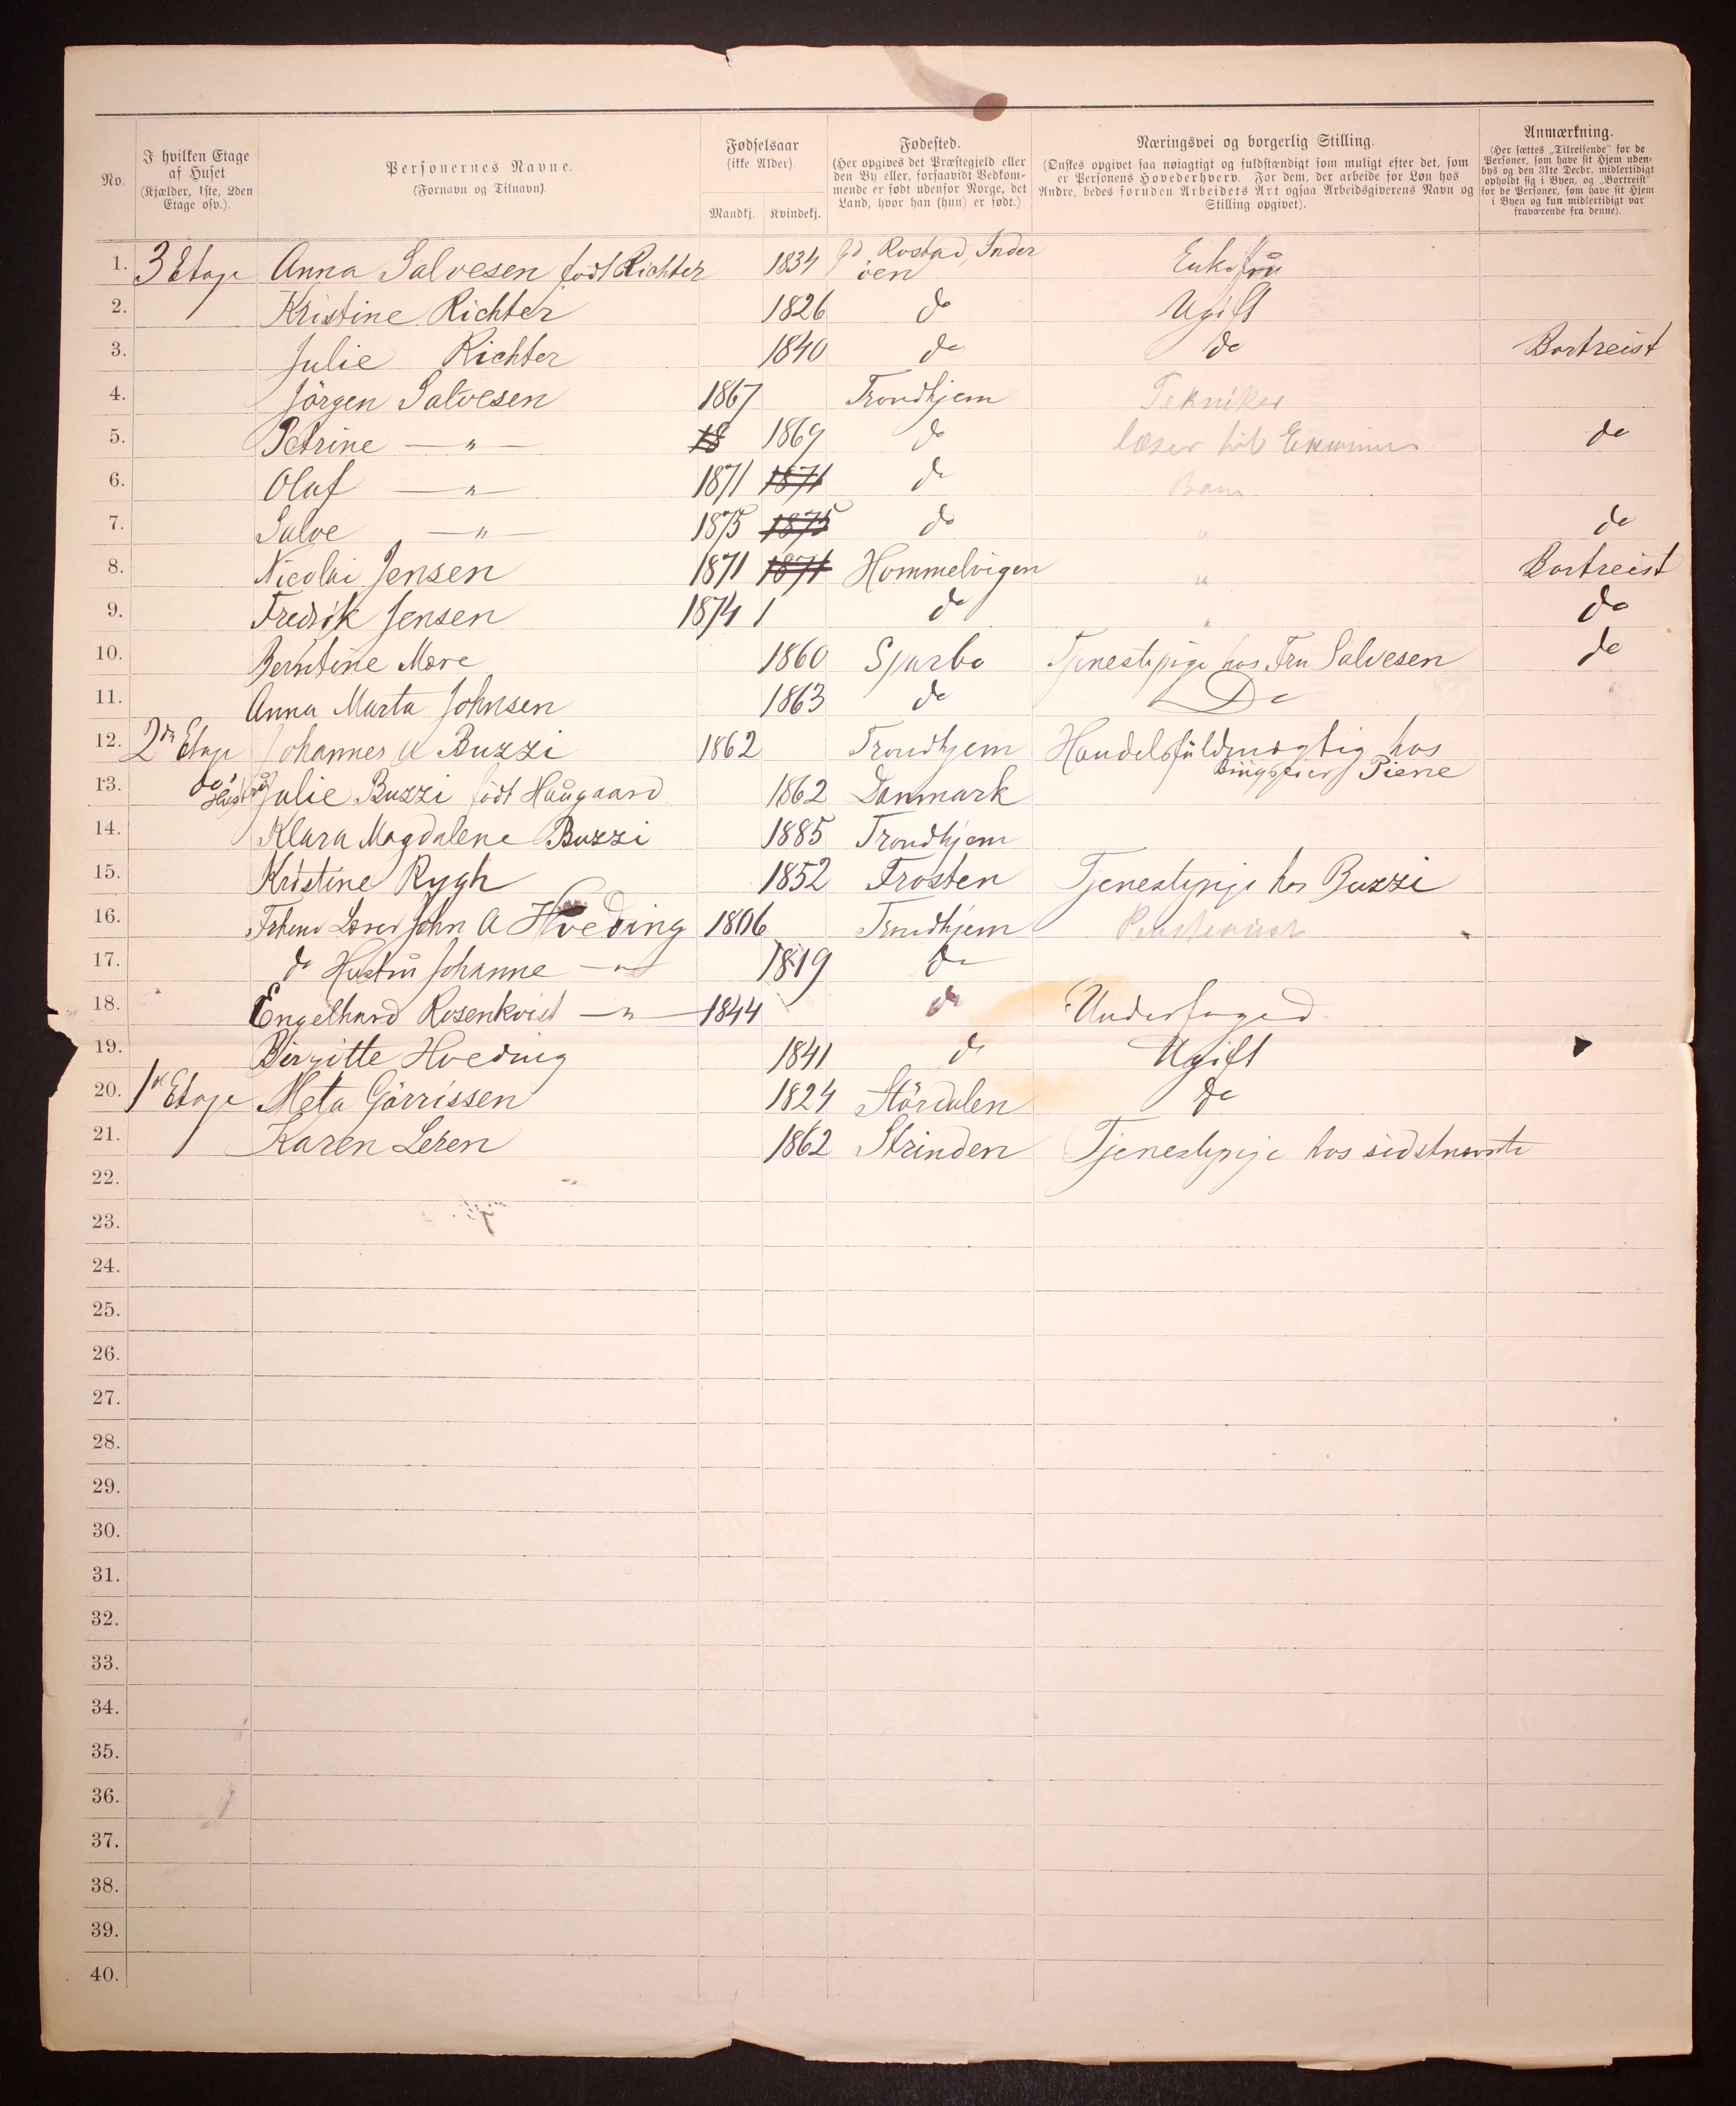 No.
I hvilken Etage
af Huset
(Kjælder, 1ste, 2den
Etage osv.).
Personernes Navne.
(Fornavn og Tilnavn).
Fødselsaar
(ikke Alder).
Mandkj. Kvindekj.
Fødested.
(Her opgives det Præstegjeld eller
den By eller, forsaavidt Vedkom-
mende er født udenfor Norge, det
Land, hvor han (hun) er født.)
Næringsvei og borgerlig Stilling.
(Ønskes opgivet saa nøiagtigt og fuldstændigt som muligt efter det, som
er Personens Hovederhverv. For dem, der arbeide for Løn hos
Andre, bedes foruden Arbeidets Art ogsaa Arbeidsgiverens Navn og
Stilling opgivet).
Anmærkning.
(Her sættes „Tilreisende" for de
Personer, som have sit Hjem uden-
bys og den 31te Decbr. midlertidigt
opholdt sig i Byen, og „Bortreist"
for de Personer, som have sit Hjem
i Byen og kun midlertidigt var
fraværende fra denne).
1. 3 Etage Anna Salvesen født Richter 1834 Rostad, Inder
öen Enkefrü
2. Kristine Richter 1826 do Ugift
3. Julie Richter 1840 do do Bortreist
4. Jörgen Salvesen 1867 Trondhjem Tekniker
5. Petrine — " — 18 1869 do læser til Examen do
6. Olaf — " — 1871 1871 do Barn
7. Salve — " — 1875 1875 do " do
8. Nicolai Jensen 1871 1871 Hommelvigen " Bortreist
9. Fredrik Jensen 1874 1 do " do
10. Berntine Mære 1860 Sparbo Tjenestepige hos Fru Salvesen do
11. Anna Marta Johnsen 1863 do Do
12. 2den Etage Johannes A Buzzi 1862 Trondhjem Handelsfüldmægtig hos
Piene
13. do Hustrü Julie Buzzi födt Haügaard 1862 Danmark
14. Klara Magdalene Buzzi 1885 Trondhjem
15. Kristine Rygh 1852 Frosten Tjenestepige hos Buzzi
16. John A Hveding 1806 Trondhjem
17. do Hustrü Johanne — " — 1819 do
18. Engelhard Rosenkvist — " — 1844 do Underfoged
19. Birgitte Hveding 1841 do Ugift
20. 1ste Etage Meta Görrissen 1824 Stördalen do
21. Karen Leren 1862 Strinden Tjenestepige hos sidstnævnte
22.
23.
24.
25.
26.
27.
28.
29.
30.
31.
32.
33.
34.
35.
36.
37.
38.
39.
40.